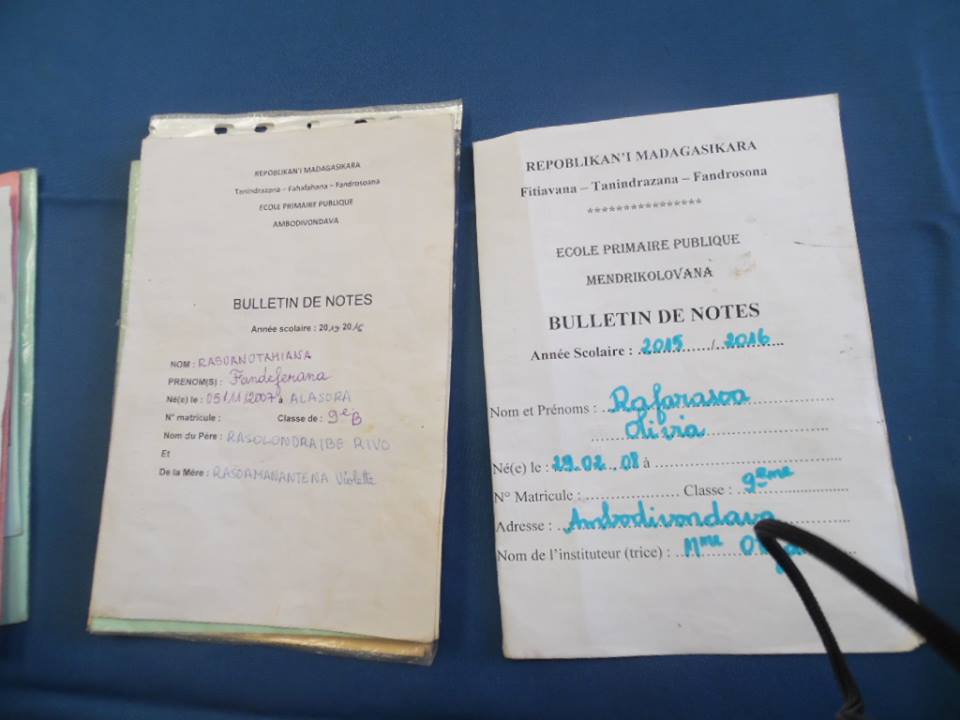 REPOBLIKAN'I MADAGASIKARA
Tanindrazana – Fahafahana – Fandrosoana
ECOLE PRIMAIRE PUBLIQUE
AMBODIVONDAVA
BULLETIN DE NOTES
Année scolaire : 2015 2016
NOM : RASOANOTAHIANA
PRENOM(S) : Fandeferana
Né(e) le : 05/11/2007 à ALASORA
N° matricule : Classe de : 9e B
Nom du Père : RASOLONDRAIBE RIVO
Et
De la Mère : RASOAMANANTENA Violette
REPOBLIKAN'I MADAGASIKARA
Fitiavana – Tanindrazana – Fandrosona
****************
ECOLE PRIMAIRE PUBLIQUE
MENDRIKOLOVANA
BULLETIN DE NOTES
Année Scolaire : 2015 / 2016
Nom et Prénoms : Rafarasoa
Olivia
Né(e) le : 29.02.08 à
N° Matricule : Classe : 9ème
Adresse : Ambodivondava
Nom de l'instituteur (trice) : Mme